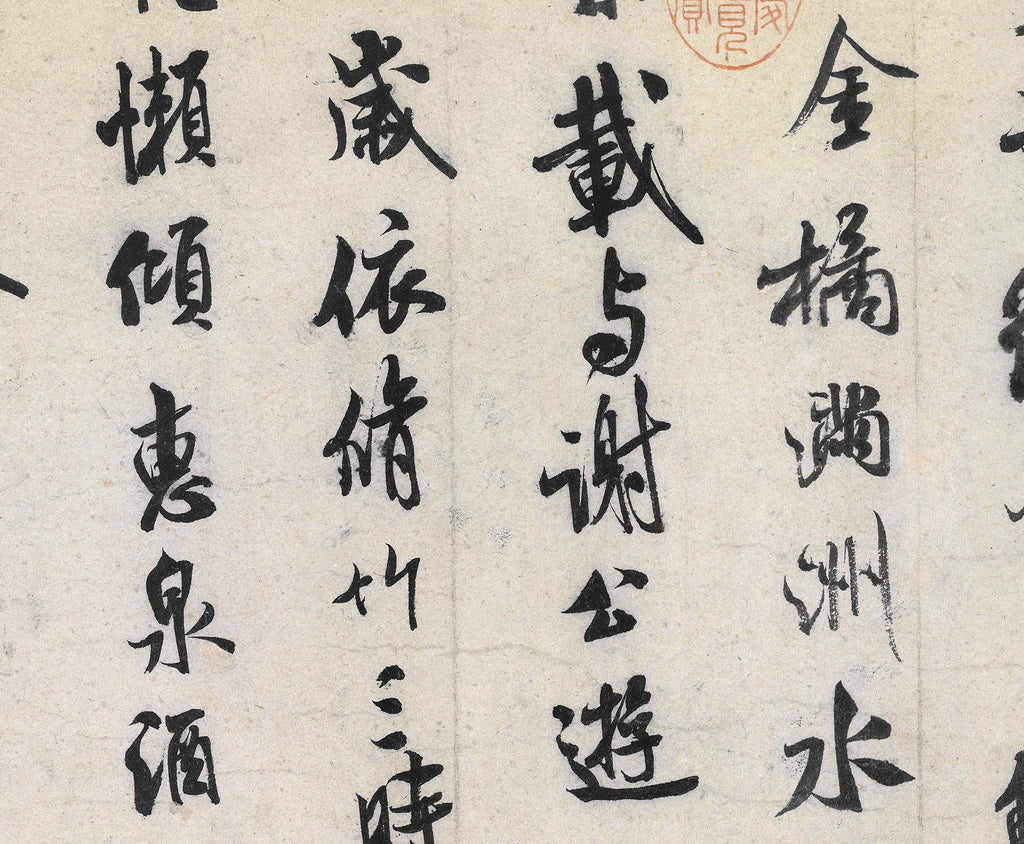 金橘滿洲水
載与謝公遊
歲依脩竹三時
懶傾惠泉酒